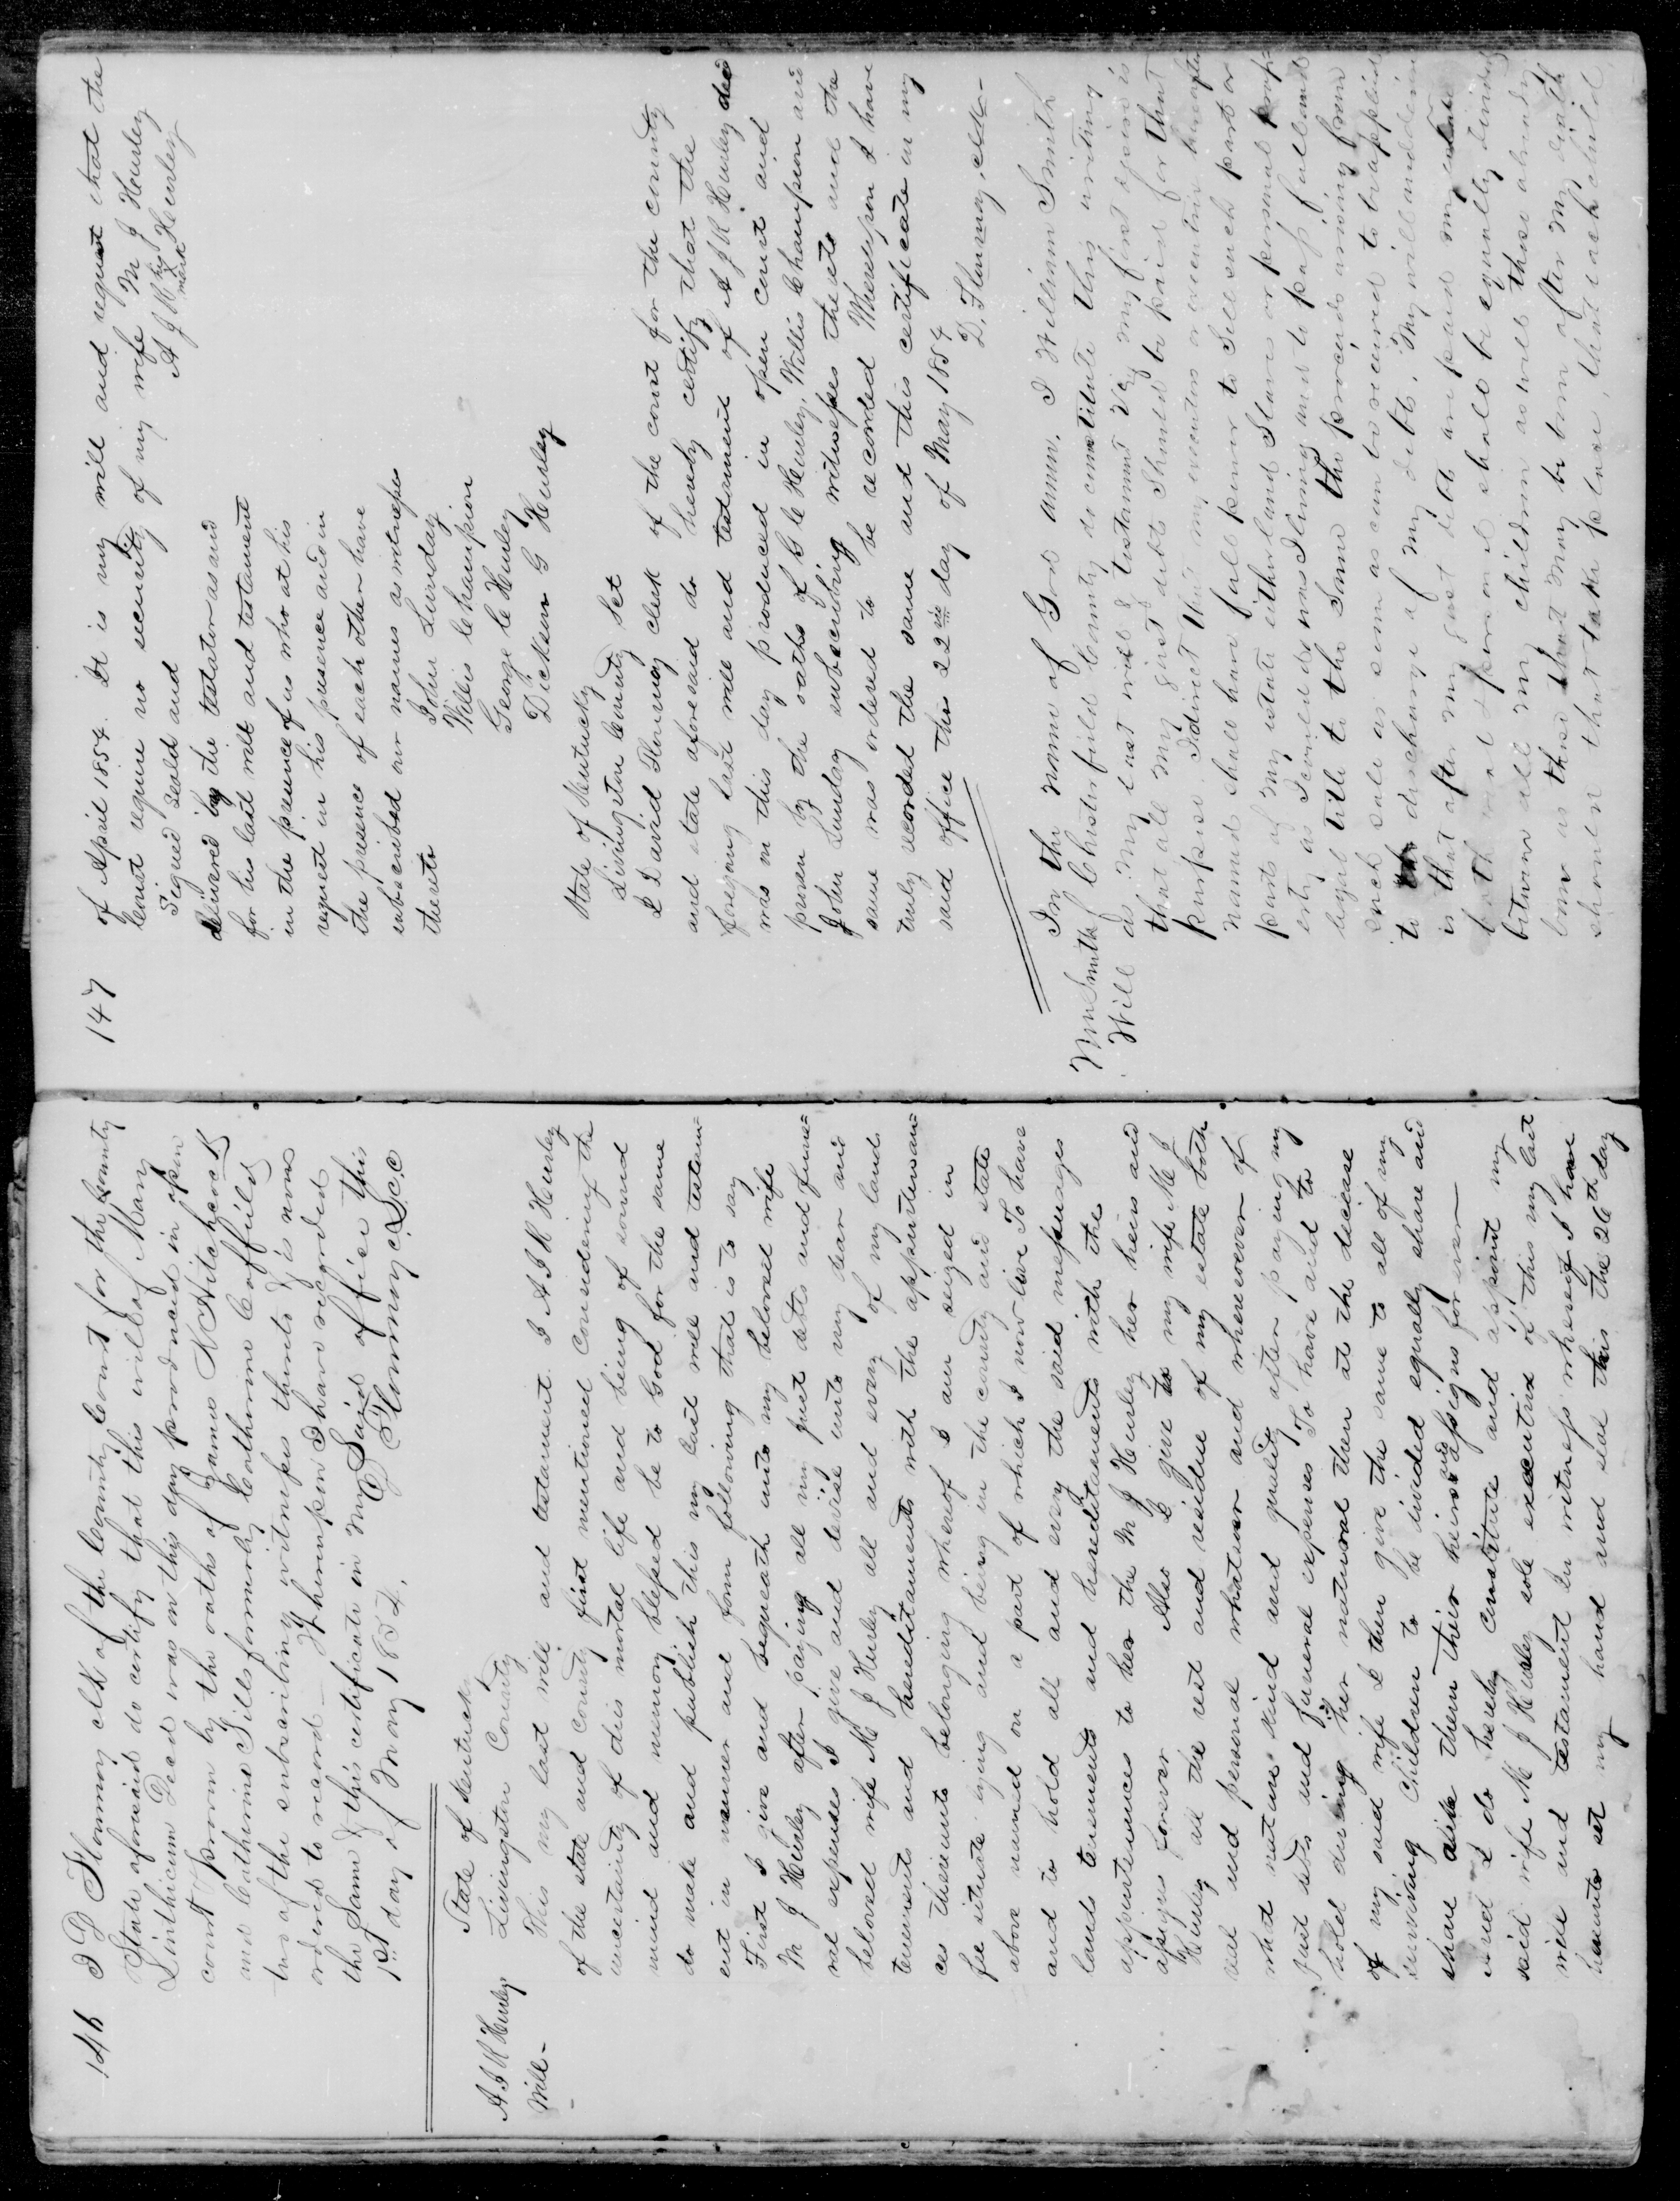 146
I D Flournoy clk of the County Court for the County
State aforesaid do certify that this will of Mary
Linthicum Decd was on this day produced in open
court & proven by the oaths of James N Hitchcock
and Catharine Sills formerly Catharine Coffield
two of the subscribing witnesses thereto & is now
ordered to record — Whereupon I have recorded
the same & this certificate in my said office this
1st day of May 1854.
D Flournoy c.L.c.c
A J R Hurley
Will -
State of Kentucky
Livingston County
This my last will and testament I A J R Hurley
of the state and county first mentioned Considering the
uncertainty of this mortal life and being of sound
mind and memory blessed be to God for the same
do make and publish this my last will and testam=
ent in manner and form following that is to say
First I give and bequeath unto my beloved wife
M J Hurley after paying all my just debts and fune=
ral expenses I give and devise unto my dear and
beloved wife M J Hurley all and every of my lands
tenements and hereditaments with the appurtenan=
ces thereunto belonging whereof I am seized in
fee situate lying and being in the county and state
above named on a part of which I now live To have
and to hold all and every the said messuages
lands tenements and hereditaments with the
appurtenances to her the M J Hurley her heirs and
assigns forever Also I give to my wife M J
Hurley all the rest and residue of my estate both
real and personal whatever and wheresoever of
what nature kind and quality after paying my
just debts and funeral expenses To have and to
hold during her natural then at the decease
of my said wife I then give the same to all of my
surviving Children to be divided equally share and
share alike them their heirs and assigns for ever —
and I do hereby constitute and appoint my
said wife M J Hurley sole executrix of this my last
will and testament In witness whereof I have
hereunto set my hand and seal this the 26th day
147
of April 1854. It is my will and request that the
Court require no security of my wife M J Hurley
A J R his mark Hurley
Signed seald and
delivered by the testator as and
for his last will and testament
in the presence of us who at his
request in his presence and in
the presence of each other have
subscribed our names as witnesses
thereto
John Lunday
Willis Champion
George C Hurley
Dickson G Hurley
State of Kentucky
Livingston County Set
I David Flournoy clerk of the court for the county
and state aforesaid do hereby certify that the
foregoing last will and testament of A J R Hurley decd
was on this day produced in open court and
proven by the oaths of G C Hurley, Willis Champion and
John Lunday subscribing witnesses thereto and the
same was ordered to be recorded Whereupon I have
truly recorded the same and this certificate in my
said office this 22nd day of May 1854
D. Flournoy, clk-
Wm Smith
Will
In the name of God amen. I William Smith
of Chesterfield County do constitute this writing
as my last will & testament Viz My first desire is
that all my just debts should be paid & for that
purpose I direct that my executor or executrix hereafter
named shall have full power to sell such part or
parts of my estate either land Slaves or personal prop=
erty as I could do was I living and to pass full and
legal title to the same the proceeds arising from
such sale as soon as can be received to be applied
to the discharge of my debts. My will and desire
is that after my just debts are paid my estate
both real & personal shall be equally divided
between all my children as well those already
born as those that may be born after my death
should that take place, that each child